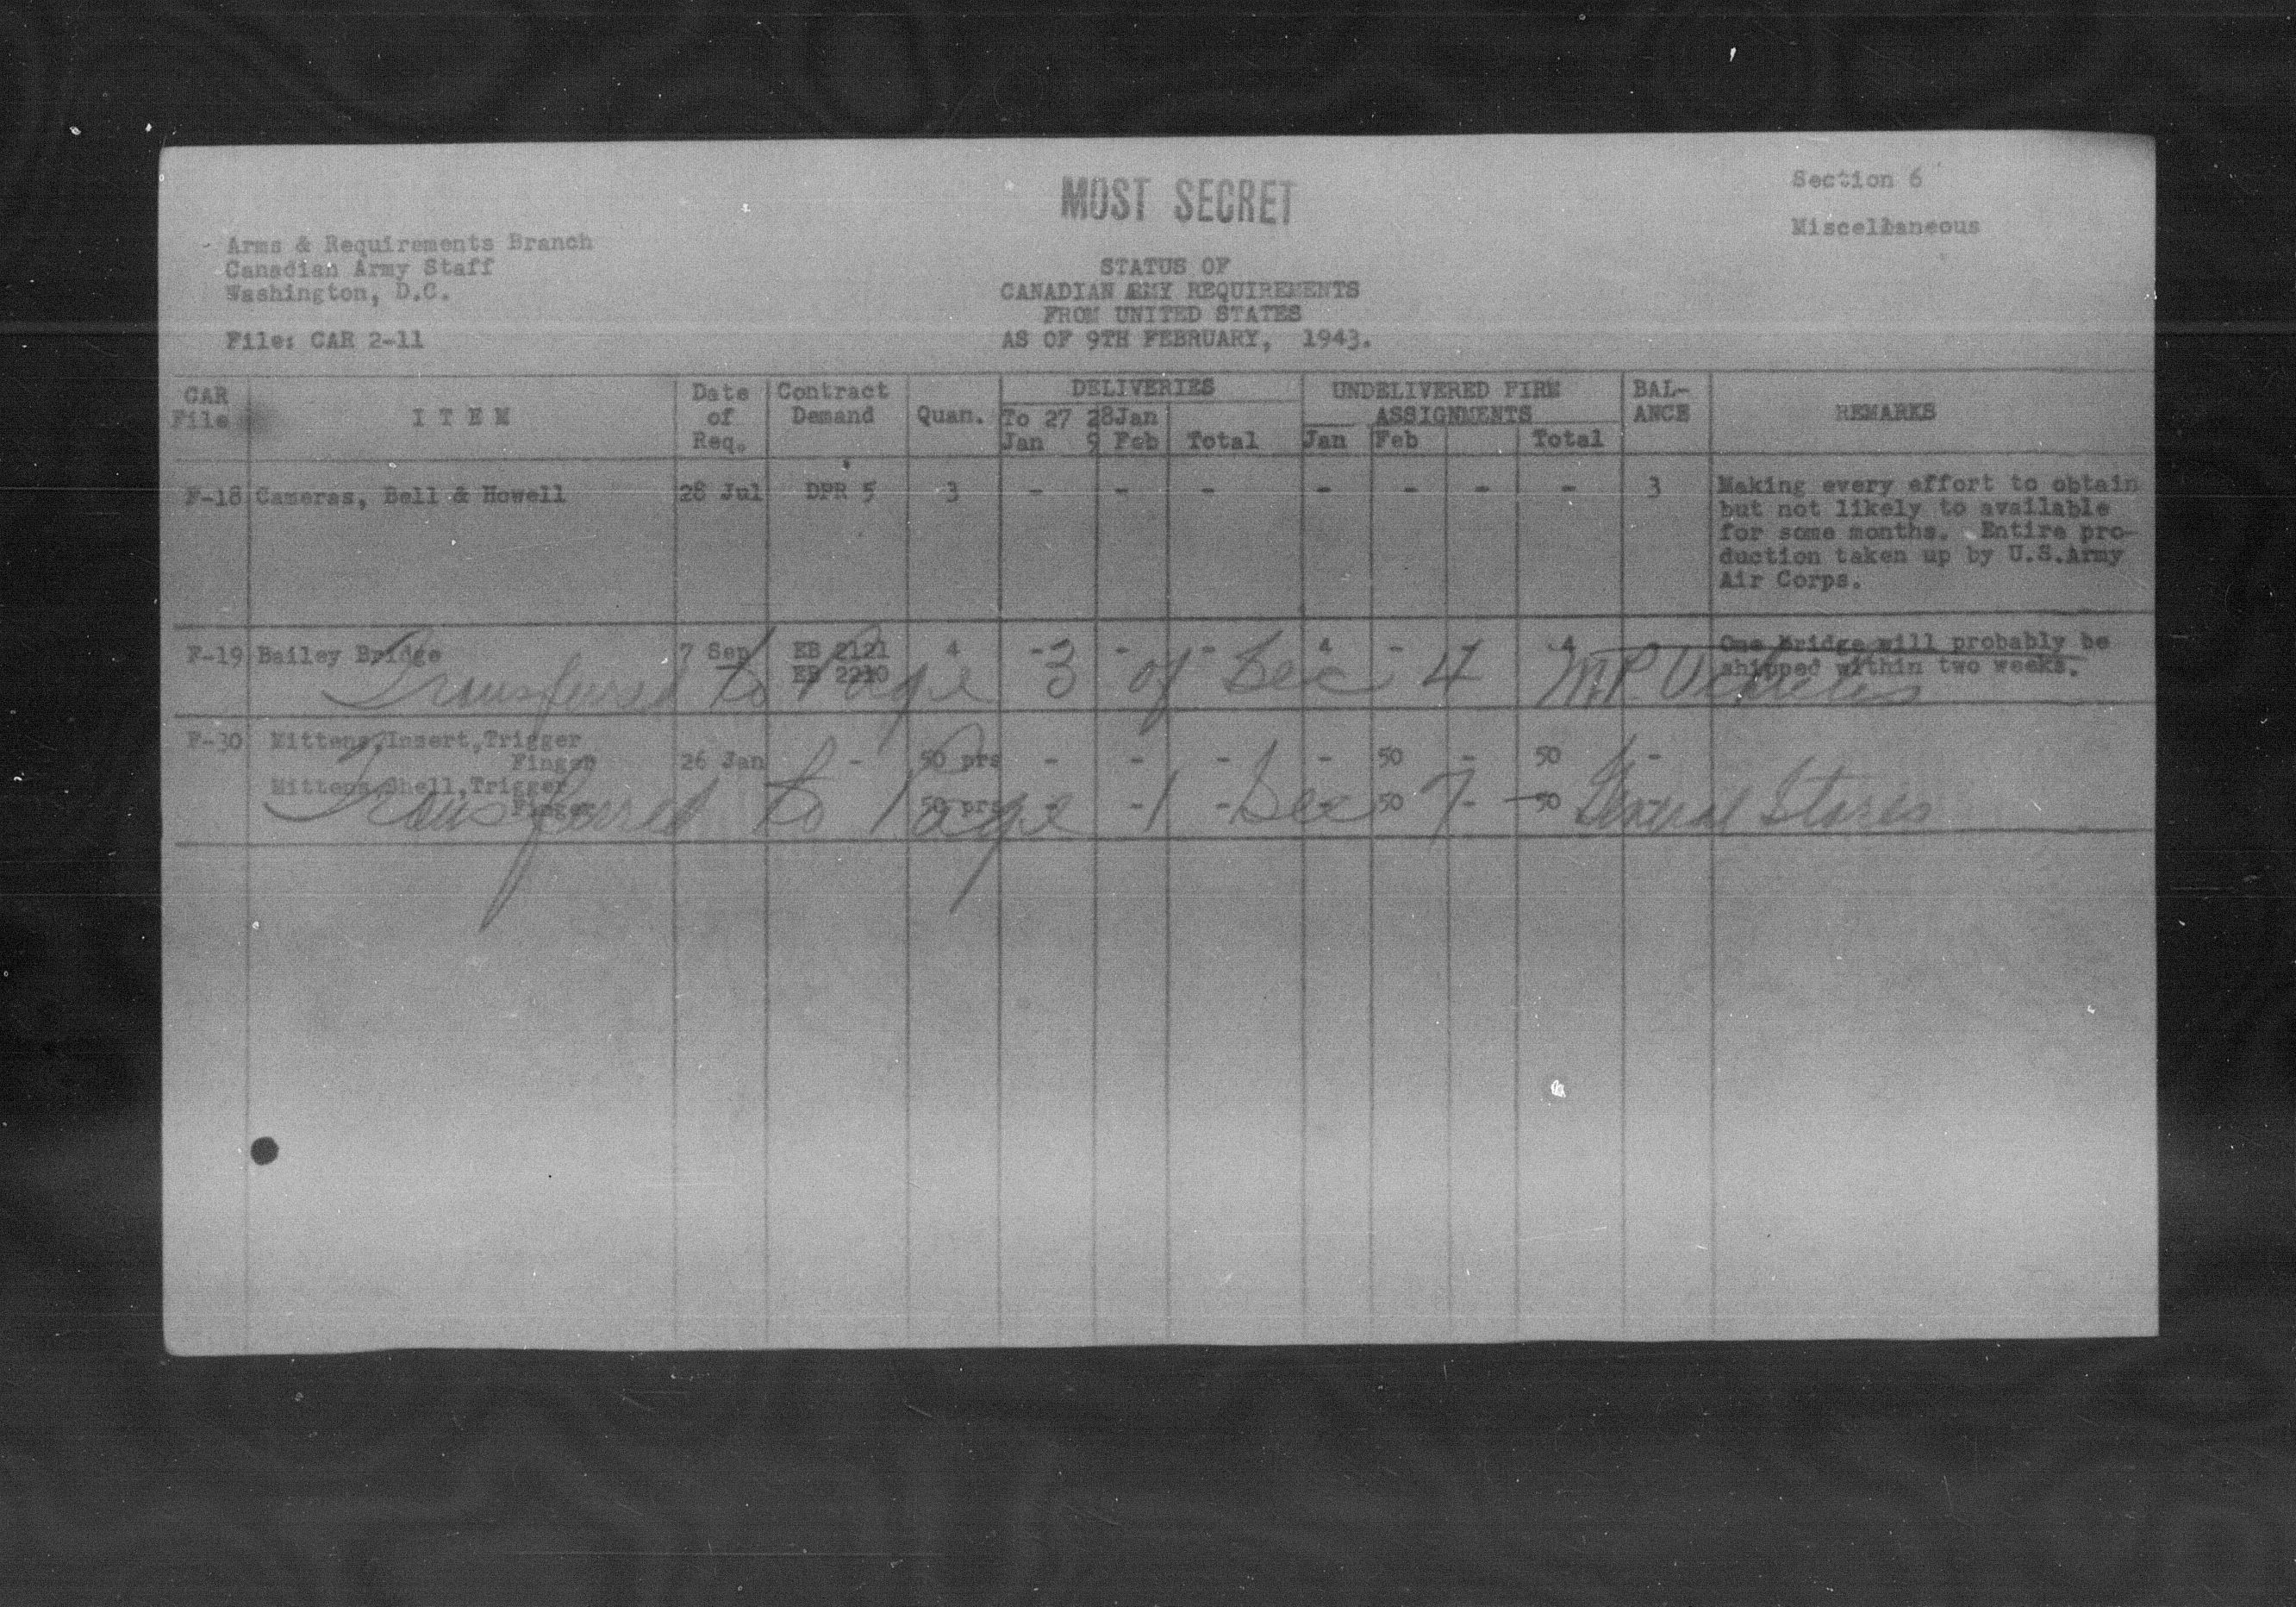 MOST SECRET
Section 6
Miscellaneous
Arms & Requirements Branch
Canadian Army Staff
Washington, D.C.
File: CAR 2-11
STATUS OF
CANADIAN ARMY REQUIREMENTS
FROM UNITED STATES
AS OF 9TH FEBRUARY, 1943.
CAR File | ITEM | Date of Req. | Contract Demand | Quan. | DELIVERIES | UNDELIVERED FIRM ASSIGNMENTS | BAL-ANCE | REMARKS
To 27 Jan | 28Jan 9 Feb | Total | Jan | Feb | | Total
F-18 Cameras, Bell & Howell 28 Jul DPR 5 3 - - - - - - - 3 Making every effort to obtain
but not likely to available
for some months. Entire pro-
duction taken up by U.S.Army
Air Corps.
F-19 Bailey Bridge 7 Sep EB 2121 4 - - - 4 - - 4 - One bridge will probably be
EB 2210 shipped within two weeks.
Transferred to Page 3 of Sec 4 M.P. Vehicles
F-30 Mittens, Insert, Trigger
Finger 26 Jan - 50 prs - - - - 50 - 50 -
Mittens, Shell, Trigger
Finger 50 prs - - - - 50 - 50
Transferred to Page 1 Sec 7 - General Stores